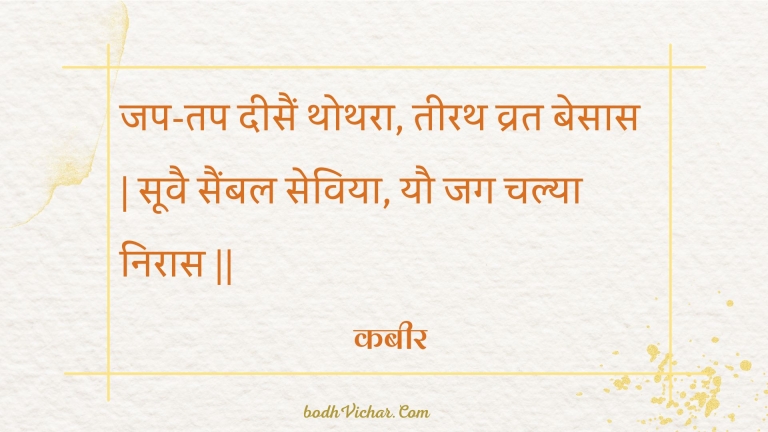 जप-तप दीसैं थोथरा, तीरथ व्रत बेसास
| सूवै सैंबल सेविया, यौ जग चल्या
निरास ||
कबीर
bodhVichar.Com